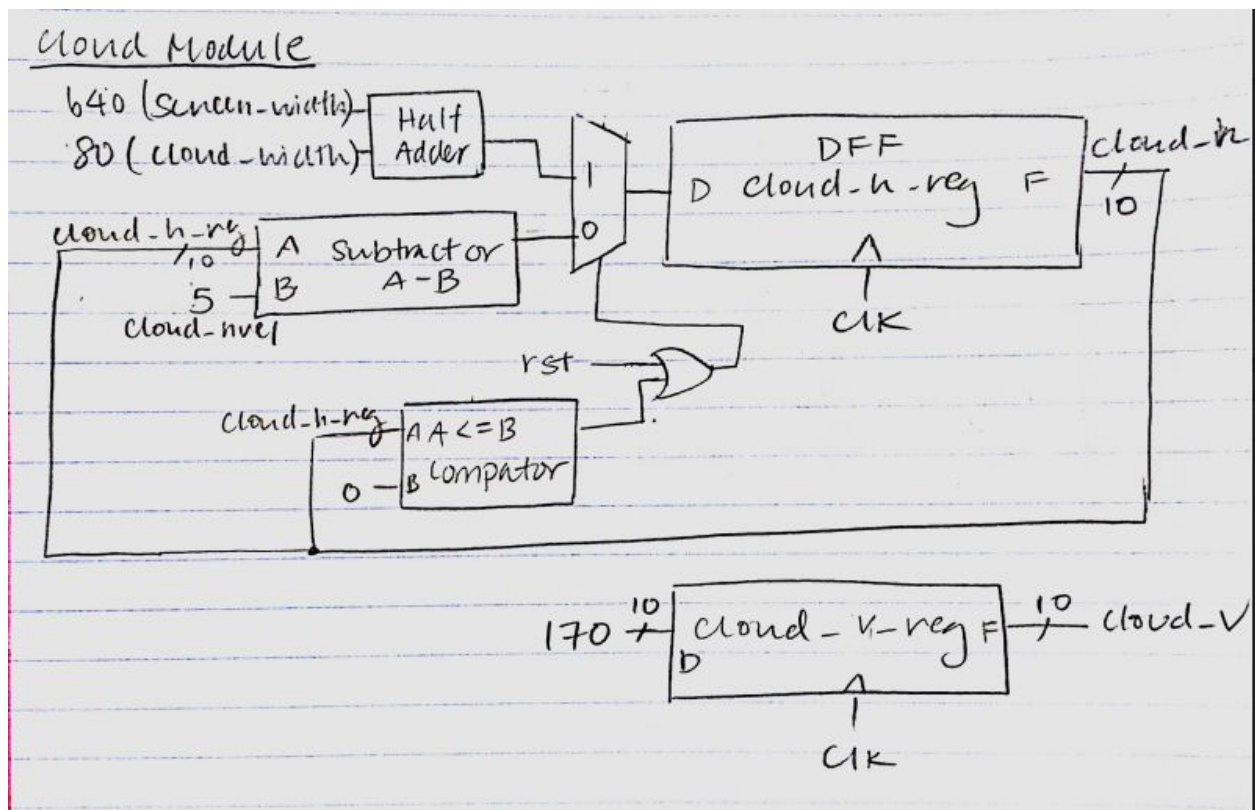 Cloud Module
640 (screen_width)
80 (cloud_width)
Half
Adder
1
0
DFF
D cloud_h_reg F
CLK
cloud_h
10
cloud_h_reg
10
A Subtractor
A-B
5 B
cloud_hvel
rst
cloud_h_reg
A A<=B
0 B Compator
170 10
cloud_v_reg F
D
10 cloud_V
CLK